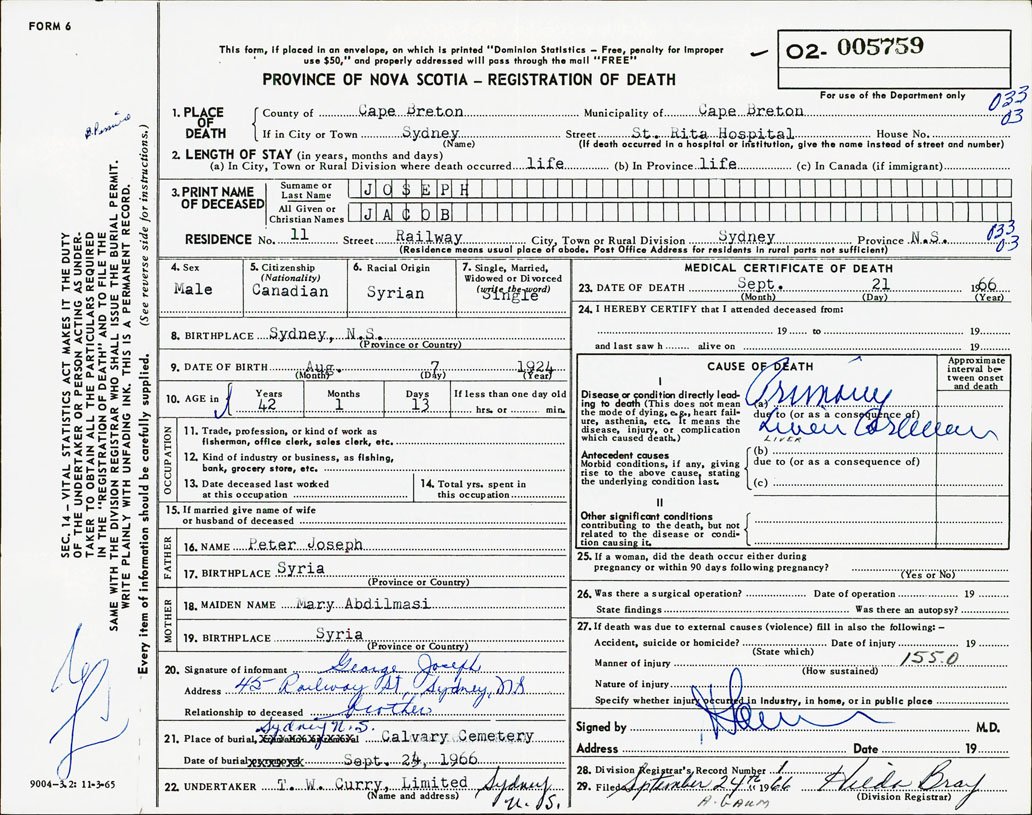 FORM 6
This form, if placed in an envelope, on which is printed "Dominion Statistics – Free, penalty for improper
use $50," and properly addressed will pass through the mail "FREE"
PROVINCE OF NOVA SCOTIA – REGISTRATION OF DEATH
02- 005759
For use of the Department only
033
03
SEC. 14 – VITAL STATISTICS ACT MAKES IT THE DUTY
OF THE UNDERTAKER OR PERSON ACTING AS UNDER-
TAKER TO OBTAIN ALL THE PARTICULARS REQUIRED
IN THE "REGISTRATION OF DEATH" AND TO FILE THE
SAME WITH THE DIVISION REGISTRAR WHO SHALL ISSUE THE BURIAL PERMIT.
WRITE PLAINLY WITH UNFADING INK. THIS IS A PERMANENT RECORD.
Every item of information should be carefully supplied. (See reverse side for instructions.)
1. PLACE OF DEATH
County of Cape Breton Municipality of Cape Breton
If in City or Town Sydney Street St. Rita Hospital House No.
(Name) (If death occurred in a hospital or institution, give the name instead of street and number)
2. LENGTH OF STAY (in years, months and days)
(a) In City, Town or Rural Division where death occurred life (b) In Province life (c) In Canada (if immigrant)
3. PRINT NAME OF DECEASED
Surname or Last Name JOSEPH
All Given or Christian Names JACOB
RESIDENCE No. 11 Street Railway City, Town or Rural Division Sydney Province N.S.
(Residence means usual place of abode. Post Office Address for residents in rural parts not sufficient)
033
03
4. Sex
Male
5. Citizenship
(Nationality)
Canadian
6. Racial Origin
Syrian
7. Single, Married,
Widowed or Divorced
(write the word)
Single
8. BIRTHPLACE Sydney, N.S.
(Province or Country)
9. DATE OF BIRTH Aug. 7 1924
(Month) (Day) (Year)
10. AGE in Years Months Days If less than one day old
42 1 13 hrs. or min.
OCCUPATION
11. Trade, profession, or kind of work as
fisherman, office clerk, sales clerk, etc.
12. Kind of industry or business, as fishing,
bank, grocery store, etc.
13. Date deceased last worked
at this occupation
14. Total yrs. spent in
this occupation
15. If married give name of wife
or husband of deceased
FATHER
16. NAME Peter Joseph
17. BIRTHPLACE Syria
(Province or Country)
MOTHER
18. MAIDEN NAME Mary Abdilmasi
19. BIRTHPLACE Syria
(Province or Country)
20. Signature of informant George Joseph
Address 45 Railway St., Sydney, NS
Relationship to deceased brother
Sydney N.S.
21. Place of burial, Calvary Cemetery
Date of burial Sept. 24, 1966
22. UNDERTAKER T. W. Curry, Limited Sydney
(Name and address) N.S.
9004-3.2: 11-3-65
MEDICAL CERTIFICATE OF DEATH
23. DATE OF DEATH Sept. 21 1966
(Month) (Day) (Year)
24. I HEREBY CERTIFY that I attended deceased from:
19 to 19
and last saw h alive on 19
CAUSE OF DEATH
Approximate
interval be-
tween onset
and death
I
Disease or condition directly lead-
ing to death (This does not mean
the mode of dying, e.g., heart fail-
ure, asthenia, etc. It means the
disease, injury, or complication
which caused death.)
(a) Primary
due to (or as a consequence of)
Liver
LIVER
Antecedent causes
Morbid conditions, if any, giving
rise to the above cause, stating
the underlying condition last.
(b)
due to (or as a consequence of)
(c)
II
Other significant conditions
contributing to the death, but not
related to the disease or condi-
tion causing it.
25. If a woman, did the death occur either during
pregnancy or within 90 days following pregnancy?
(Yes or No)
26. Was there a surgical operation? Date of operation 19
State findings Was there an autopsy?
27. If death was due to external causes (violence) fill in also the following:–
Accident, suicide or homicide? Date of injury 19
(State which)
Manner of injury 155.0
(How sustained)
Nature of injury
Specify whether injury occurred in Industry, in home, or in public place
Signed by M.D.
Address Date 19
28. Division Registrar's Record Number 1
29. Filed September 24th 1966 Hilda Bray
(Division Registrar)